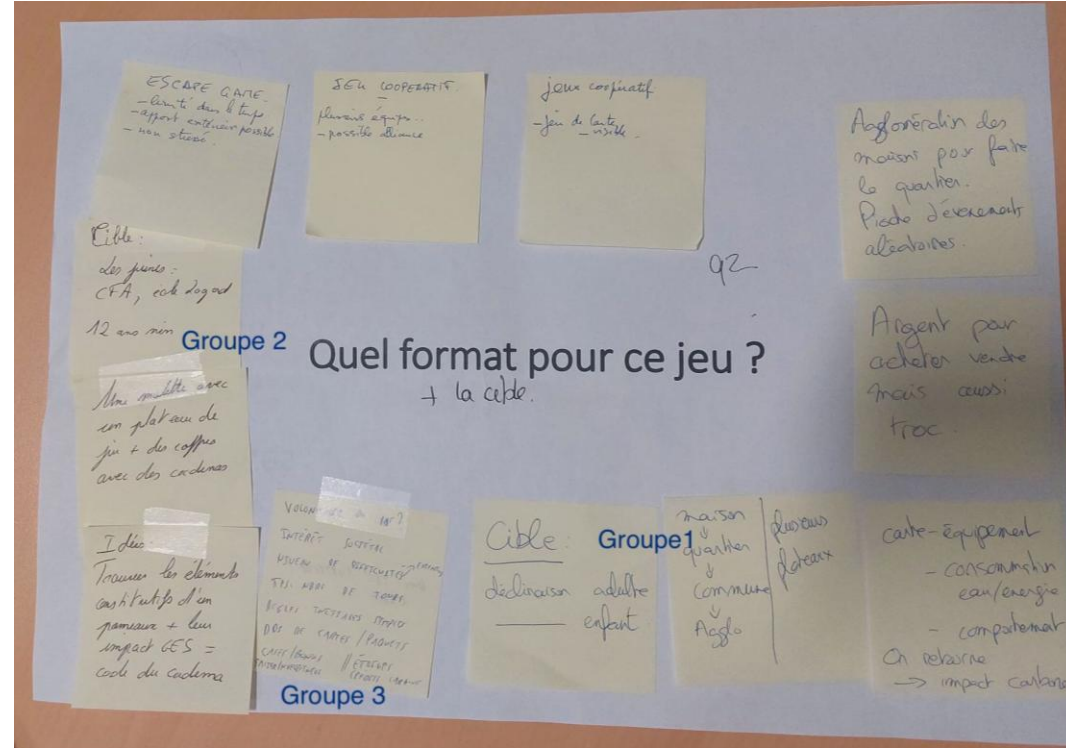 ESCAPE GAME.
- limité dans le temps
- apport extérieur possible
- non
JEU COOPERATIF.
plusieurs équipes..
- possible alliance
jeux coopératif
- jeu de cartes
- visible.
Agglomération des
maisons pour faire
le quartier.
Pioche d'évenements
aléatoires.
Cible:
Les jeunes:
CFA, école
12 ans min
Groupe 2
92
Quel format pour ce jeu ?
+ la cible.
Argent pour
acheter vendre
mais aussi
troc.
Une mallette avec
un plateau de
jeu + des coffres
avec des cadenas
Idées:
Trouver les éléments
constitutifs d'un
panneaux + leur
impact GES =
code du cadena
INTÉRÊT
NIVEAU DE DIFFICULTÉ
DE TOURS,
DE CARTES / PAQUETS
Groupe 3
Cible:
déclinaison adulte
enfant
Groupe1
maison
quartier
Commune
Agglo
plusieurs
plateaux
carte-équipement
- consommation
eau/énergie
- comportement
On retourne
-> impact carbone